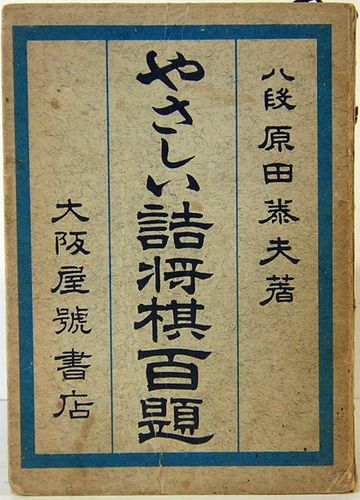 八段 原田泰夫著
やさしい詰将棋百題
大阪屋號書店